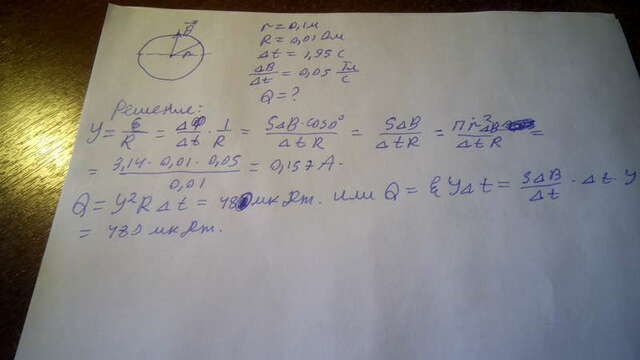 B
r
r = 0,1 м
R = 0,01 Ом
Δt = 1,95 с
ΔB/Δt = 0,05 Тл/с
Q = ?
Решение:
У = ε/R = ΔФ/Δt · 1/R = SΔB·cos0°/ΔtR = SΔB/ΔtR = πr²ΔB/ΔtR =
= 3,14 · 0,01 · 0,05/0,01 = 0,157 А.
Q = У²RΔt = 480 мкДж. или Q = ε УΔt = SΔB/Δt · Δt · У
= 480 мкДж.